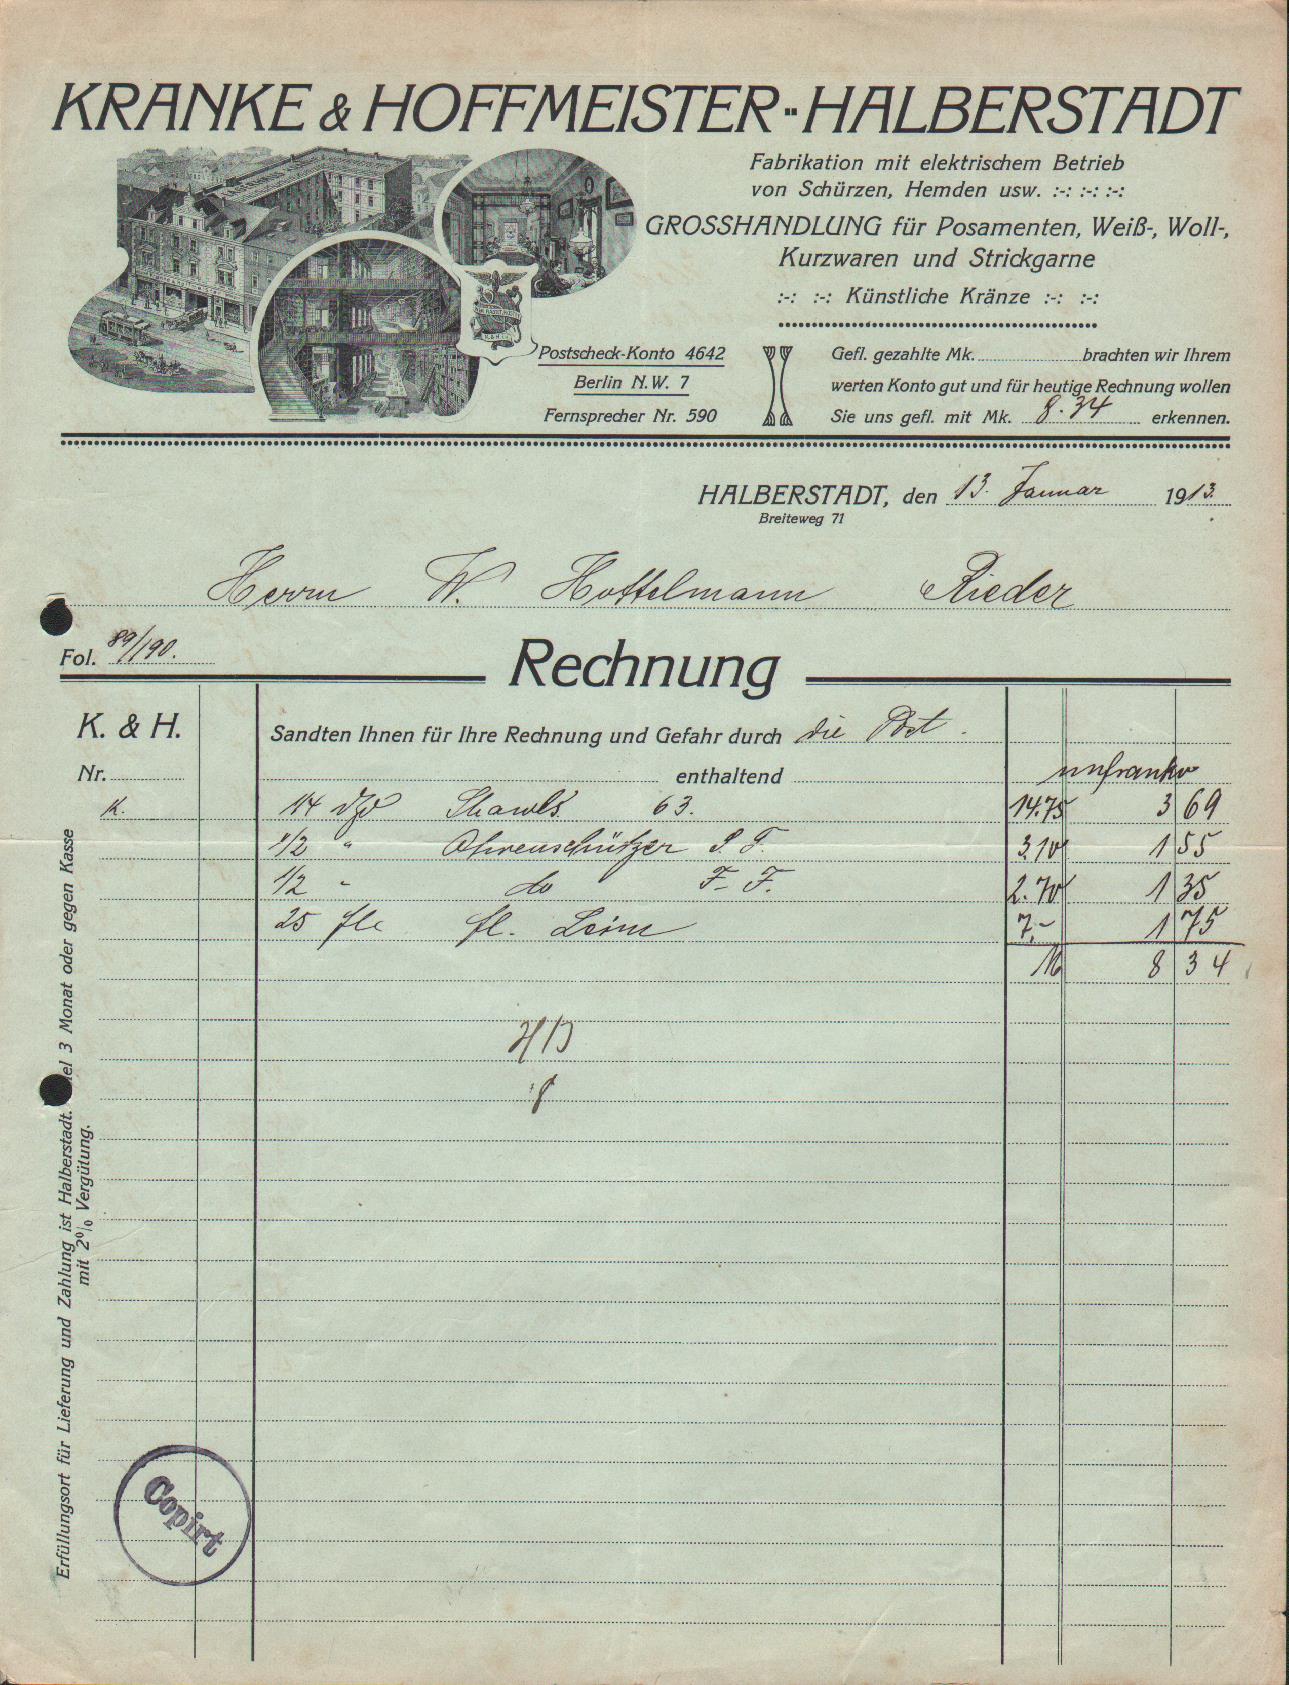 KRANKE & HOFFMEISTER ·· HALBERSTADT
Fabrikation mit elektrischem Betrieb
von Schürzen, Hemden usw. :-: :-: :-:
GROSSHANDLUNG für Posamenten, Weiß-, Woll-,
Kurzwaren und Strickgarne
:-: :-: Künstliche Kränze :-: :-:
Postscheck-Konto 4642
Berlin N.W. 7
Fernsprecher Nr. 590
Gefl. gezahlte Mk. brachten wir Ihrem
werten Konto gut und für heutige Rechnung wollen
Sie uns gefl. mit Mk. 8.34 erkennen.
HALBERSTADT, den 13. Januar 1913.
Breiteweg 71
Herrn W. Hottelmann Rieder
Fol. 89/190.
Rechnung
K. & H.
Sandten Ihnen für Ihre Rechnung und Gefahr durch die Post.
Nr. enthaltend unfranko
K. 1/4 Dzd Shawls 63. 14.75 3 69
1/2 " Ohrenschützer S. F. 3.10 1 55
1/2 " do F. F. 2.70 1 35
25 fl. Leim 7.- 1 75
M 8 34
Erfüllungsort für Lieferung und Zahlung ist Halberstadt. 3 Monat oder gegen Kasse
mit 2% Vergütung.
Copirt